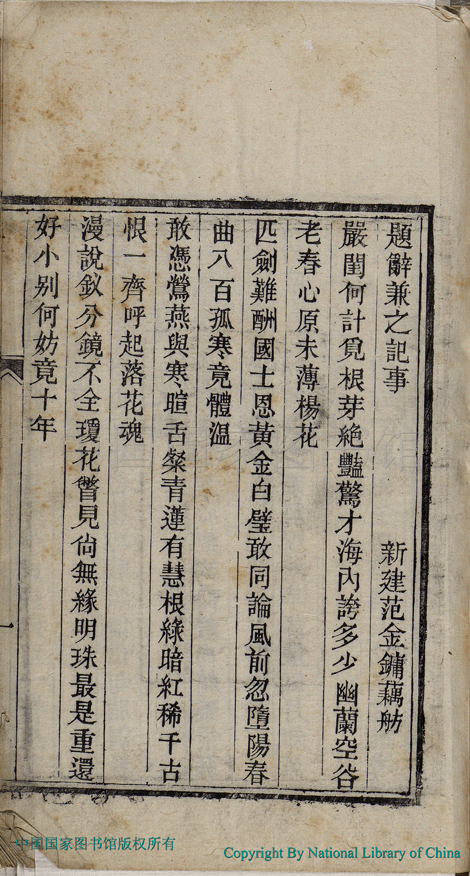 題辭兼之記事
新建范金鏞藕舫
嚴閨何計覓根芽絶豔驚才海內誇多少幽蘭空谷
老春心原未薄楊花
匹劍難酬國士恩黃金白璧敢同論風前忽墮陽春
曲八百孤寒竟體溫
敢憑鶯燕與寒暄舌粲青蓮有慧根綠暗紅稀千古
恨一齊呼起落花魂
漫說釵分鏡不全瓊花瞥見尙無緣明珠最是重還
好小别何妨竟十年
一
中国国家图书馆版权所有
Copyright By National Library of China